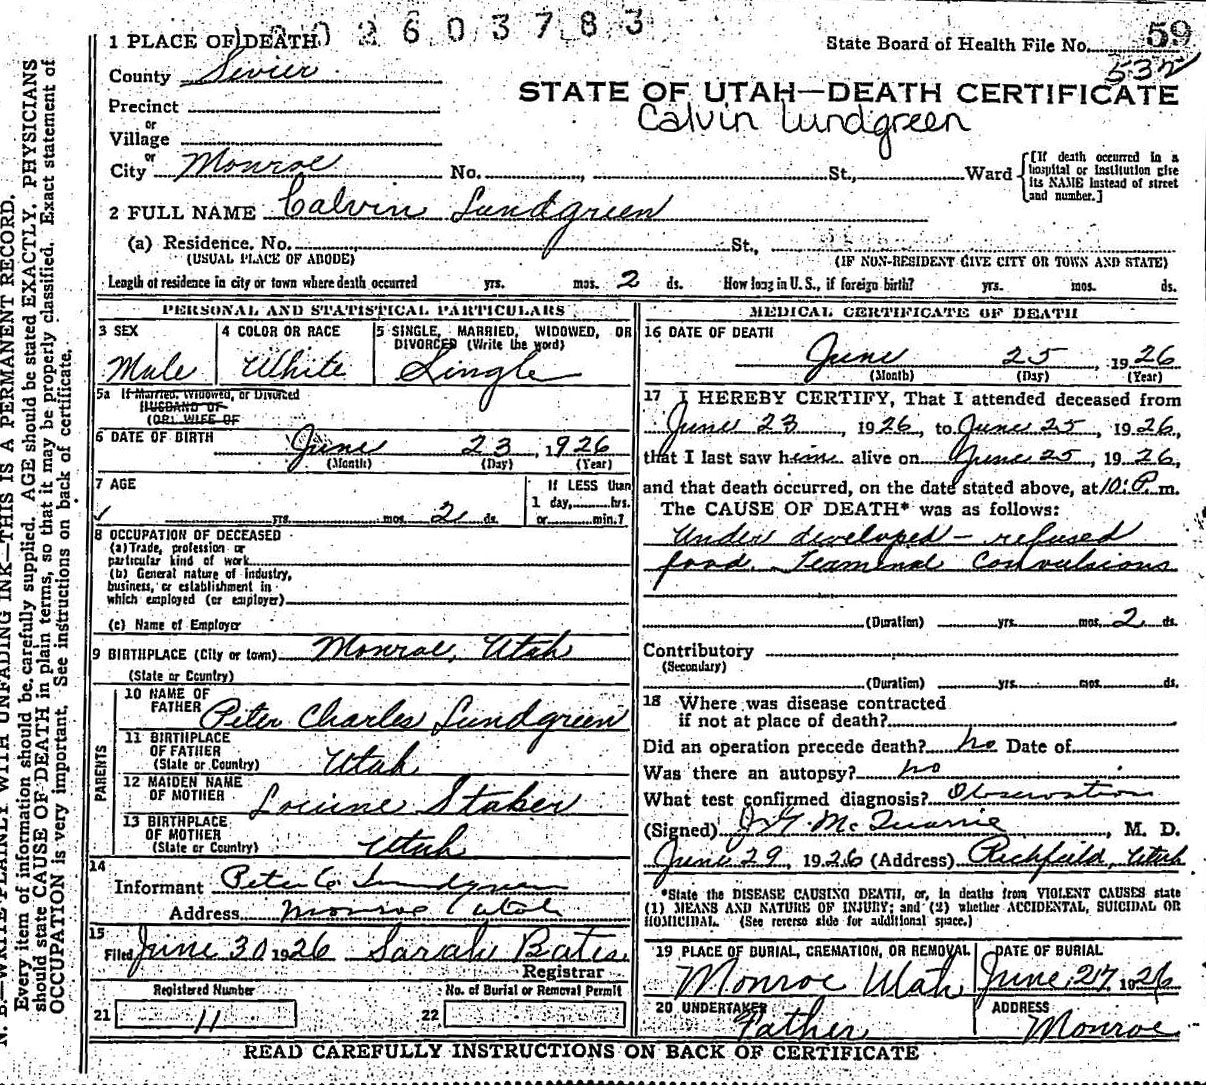 2603783
State Board of Health File No. 59
532
1 PLACE OF DEATH
County Sevier
STATE OF UTAH—DEATH CERTIFICATE
Calvin Lundgreen
Precinct
or
Village
or
City Monroe No. St., Ward
[If death occurred in a hospital or institution give its NAME instead of street and number.]
2 FULL NAME Calvin Lundgreen
(a) Residence, No. St.,
(USUAL PLACE OF ABODE) (IF NON-RESIDENT GIVE CITY OR TOWN AND STATE)
Length of residence in city or town where death occurred yrs. mos. 2 ds. How long in U. S., if foreign birth? yrs. mos. ds.
PERSONAL AND STATISTICAL PARTICULARS
3 SEX Male
4 COLOR OR RACE White
5 SINGLE, MARRIED, WIDOWED, OR DIVORCED (Write the word) Single
5a If Married, Widowed, or Divorced
HUSBAND OF
(OR) WIFE OF
6 DATE OF BIRTH June 23, 1926
(Month) (Day) (Year)
7 AGE If LESS than
1 day, hrs.
yrs. mos. 2 ds. or min.?
8 OCCUPATION OF DECEASED
(a) Trade, profession or
particular kind of work
(b) General nature of industry,
business, or establishment in
which employed (or employer)
(c) Name of Employer
9 BIRTHPLACE (City or town) Monroe, Utah
(State or Country)
PARENTS
10 NAME OF FATHER Peter Charles Lundgreen
11 BIRTHPLACE OF FATHER (State or Country) Utah
12 MAIDEN NAME OF MOTHER Staker
13 BIRTHPLACE OF MOTHER (State or Country) Utah
14
Informant Peter C. Lundgreen
Address Monroe Utah
15
Filed June 30 1926 Sarah Bates
Registrar
Registered Number No. of Burial or Removal Permit
21 11 22
MEDICAL CERTIFICATE OF DEATH
16 DATE OF DEATH
June 25, 1926
(Month) (Day) (Year)
17 I HEREBY CERTIFY, That I attended deceased from
June 23, 1926, to June 25, 1926,
that I last saw him alive on June 25, 1926,
and that death occurred, on the date stated above, at 10: P. m.
The CAUSE OF DEATH* was as follows:
Under developed - refused
food. Terminal Convulsions
(Duration) yrs. mos. 2 ds.
Contributory
(Secondary)
(Duration) yrs. mos. ds.
18 Where was disease contracted
if not at place of death?
Did an operation precede death? no Date of
Was there an autopsy? no
What test confirmed diagnosis? Observation
(Signed) McQuarrie, M. D.
June 29, 1926 (Address) Richfield, Utah
*State the DISEASE CAUSING DEATH, or, in deaths from VIOLENT CAUSES state
(1) MEANS AND NATURE OF INJURY; and (2) whether ACCIDENTAL, SUICIDAL OR
HOMICIDAL. (See reverse side for additional space.)
19 PLACE OF BURIAL, CREMATION, OR REMOVAL Monroe Utah
DATE OF BURIAL June 27 1926
20 UNDERTAKER Father
ADDRESS Monroe
READ CAREFULLY INSTRUCTIONS ON BACK OF CERTIFICATE
N. B.—WRITE PLAINLY WITH UNFADING INK—THIS IS A PERMANENT RECORD.
Every item of information should be carefully supplied. AGE should be stated EXACTLY. PHYSICIANS
should state CAUSE OF DEATH in plain terms, so that it may be properly classified. Exact statement of
OCCUPATION is very important. See instructions on back of certificate.